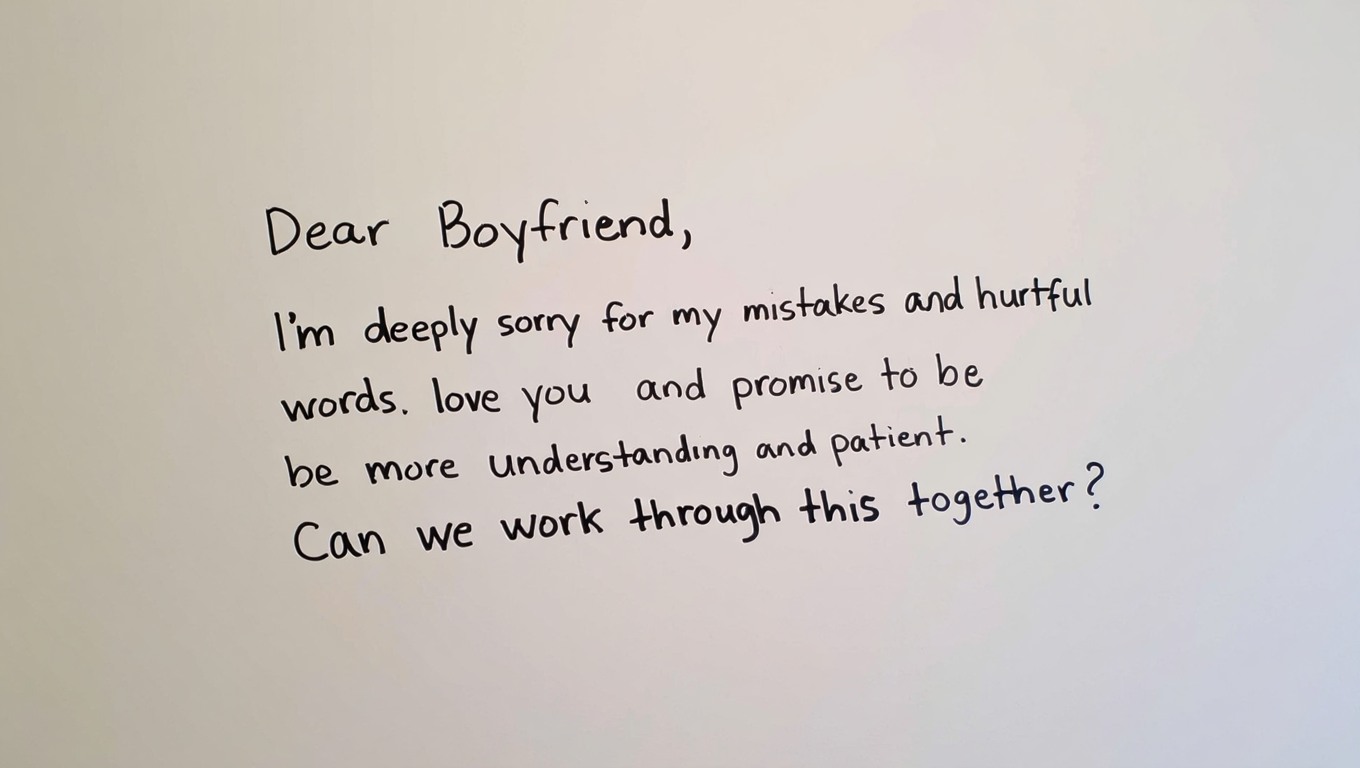 Dear Boyfriend,
I'm deeply sorry for my mistakes and hurtful
words. love you and promise to be
be more understanding and patient.
Can we work through this together?